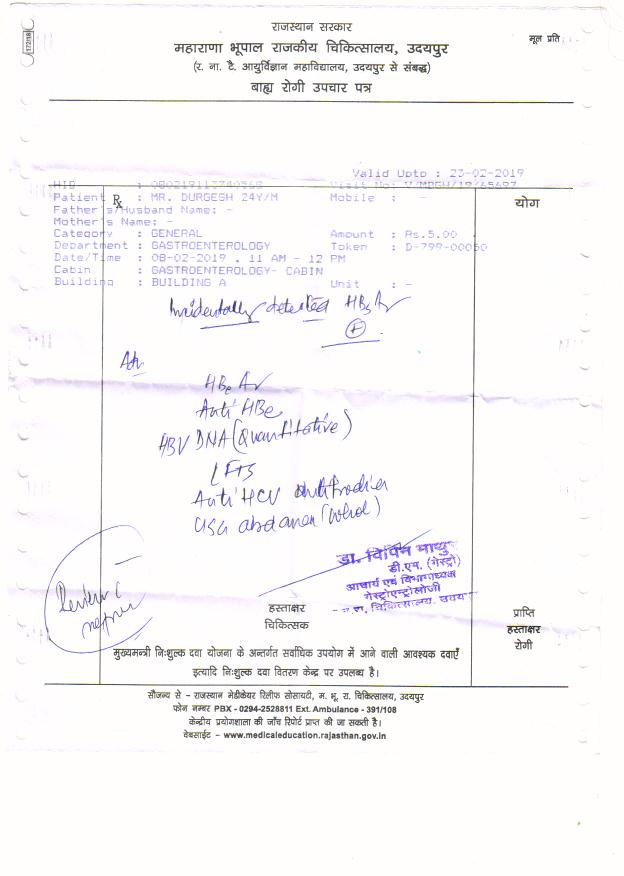 172/18
राजस्थान सरकार
मूल प्रति
महाराणा भूपाल राजकीय चिकित्सालय, उदयपुर
(र. ना. टै. आयुर्विज्ञान महाविद्यालय, उदयपुर से संबद्ध)
बाह्य रोगी उपचार पत्र
Valid Upto : 23-02-2019
Patient : MR. DURGESH 24Y/M Mobile : -
Rx
योग
Father's/Husband Name: -
Mother's Name: -
Category : GENERAL Amount : Rs.5.00
Department : GASTROENTEROLOGY Token : D-799-00050
Date/Time : 08-02-2019 . 11 AM - 12 PM
Cabin : GASTROENTEROLOGY- CABIN
Building : BUILDING A Unit : -
Incidentally detected HBsAg
+
Adv
HBeAg
Anti HBe
HBV DNA (Quantitative)
LFTs
Anti HCV antibodies
USG abdomen (whole)
Review c
डा. विपिन माथुर
डी.एम. (गेस्ट्रो)
आचार्य एवं विभागाध्यक्ष
गेस्ट्रोएन्ट्रोलोजी
चिकित्सालय, उदय
हस्ताक्षर
चिकित्सक
प्राप्ति
हस्ताक्षर
रोगी
मुख्यमन्त्री निःशुल्क दवा योजना के अन्तर्गत सर्वाधिक उपयोग में आने वाली आवश्यक दवाएँ
इत्यादि निःशुल्क दवा वितरण केन्द्र पर उपलब्ध है।
सौजन्य से - राजस्थान मेडीकेयर रिलीफ सोसायटी, म. भू. रा. चिकित्सालय, उदयपुर
फोन नम्बर PBX - 0294-2528811 Ext. Ambulance - 391/108
केन्द्रीय प्रयोगशाला की जाँच रिपोर्ट प्राप्त की जा सकती है।
वेबसाईट - www.medicaleducation.rajasthan.gov.in